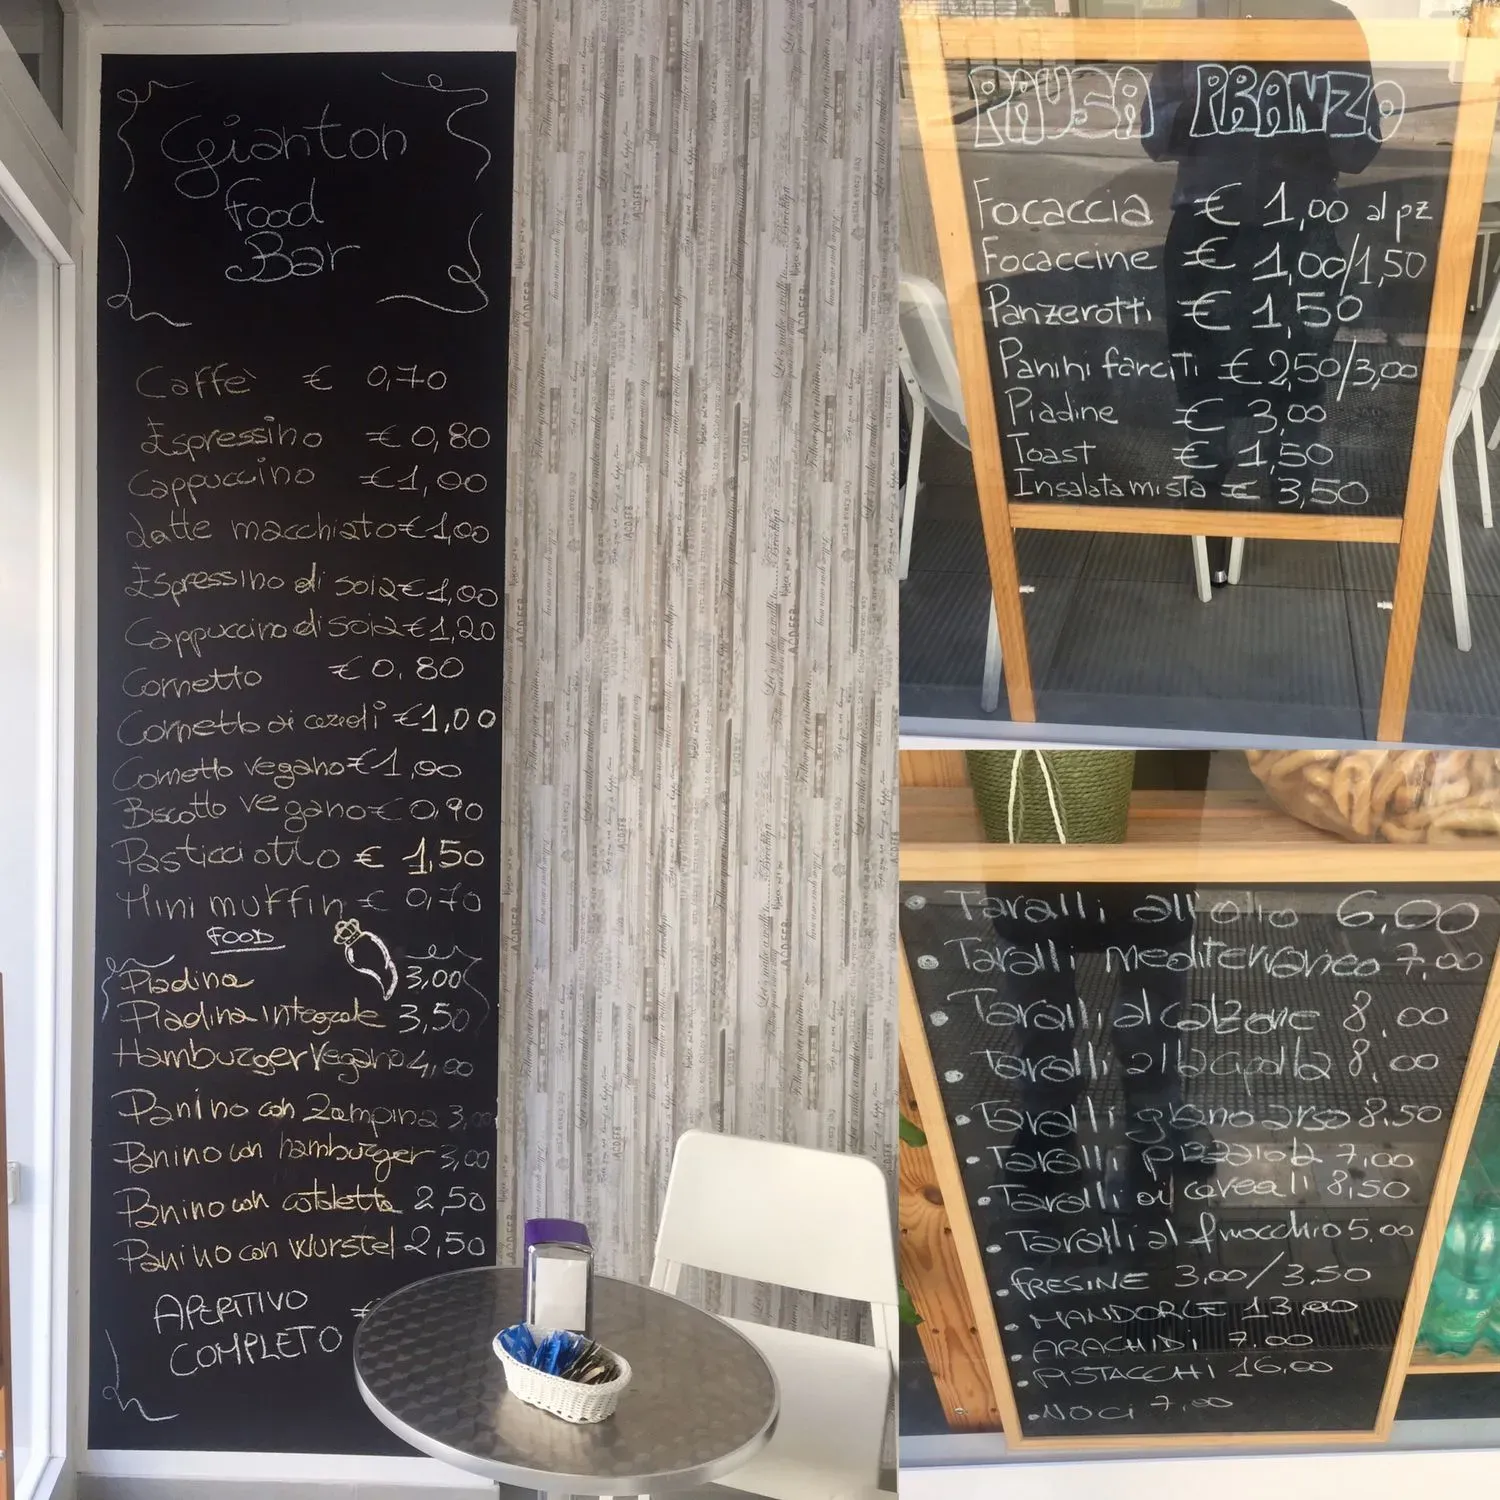 Gianton
Food
Bar
Caffè € 0,70
Espressino € 0,80
Cappuccino € 1,00
Latte macchiato € 1,00
Espressino di soia € 1,00
Cappuccino di soia € 1,20
Cornetto € 0,80
Cornetto ai cereali € 1,00
Cornetto vegano € 1,00
Biscotto vegano € 0,90
Pasticciotto € 1,50
Mini muffin € 0,70
FOOD
Piadina 3,00
Piadina integrale 3,50
Hamburger Vegano 4,00
Panino con Zampina 3,00
Panino con hamburger 3,00
Panino con cotoletta 2,50
Panino con wurstel 2,50
APERITIVO €
COMPLETO
PAUSA PRANZO
Focaccia € 1,00 al pz
Focaccine € 1,00/1,50
Panzerotti € 1,50
Panini farciti € 2,50/3,00
Piadine € 3,00
Toast € 1,50
Insalata mista € 3,50
Taralli all'olio 6,00
Taralli mediterraneo 7,00
Taralli al calzone 8,00
Taralli alla cipolla 8,00
Taralli grano arso 8,50
Taralli pizzaiola 7,00
Taralli ai cereali 8,50
Taralli al finocchio 5,00
FRESINE 3,00/3,50
MANDORLE 13,00
ARACHIDI 7,00
PISTACCHI 16,00
NOCI 7,00